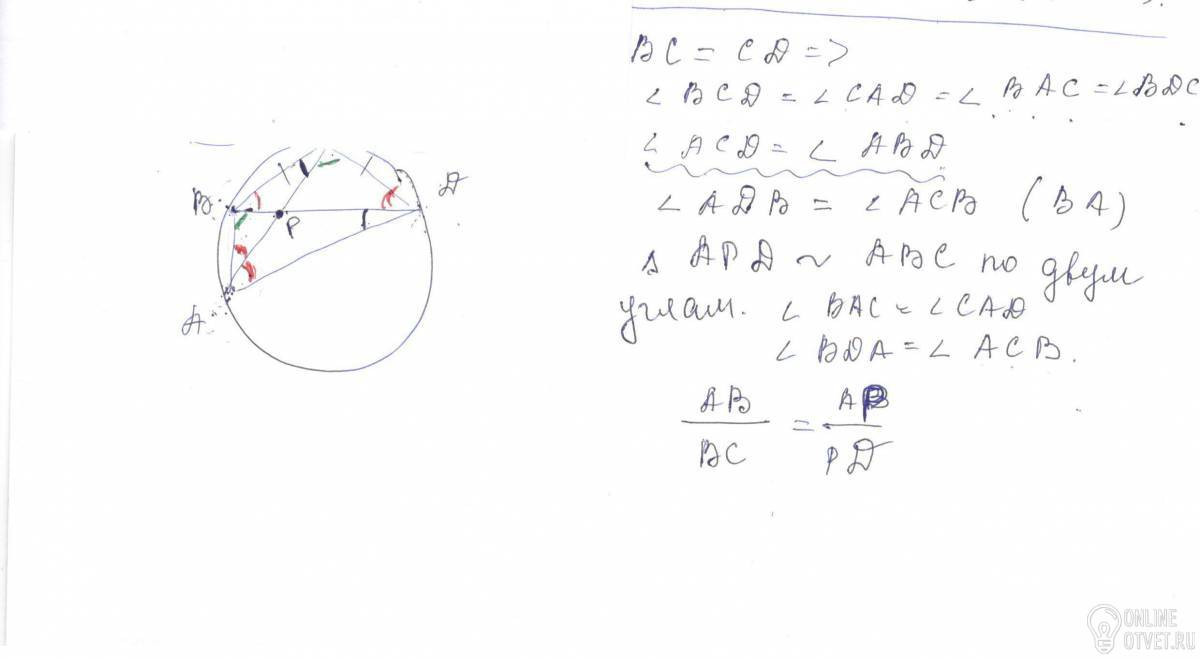 B
D
P
A
BC = CD =>
∠ BCD = ∠ CAD = ∠ BAC = ∠BDC
∠ ACD = ∠ ABD
∠ ADB = ∠ ACB (BA)
Δ APD ~ ABC по двум
углам. ∠ BAC = ∠CAD
∠ BDA = ∠ ACB.
AB / BC = AP / PD
ONLINE
OTVET.RU